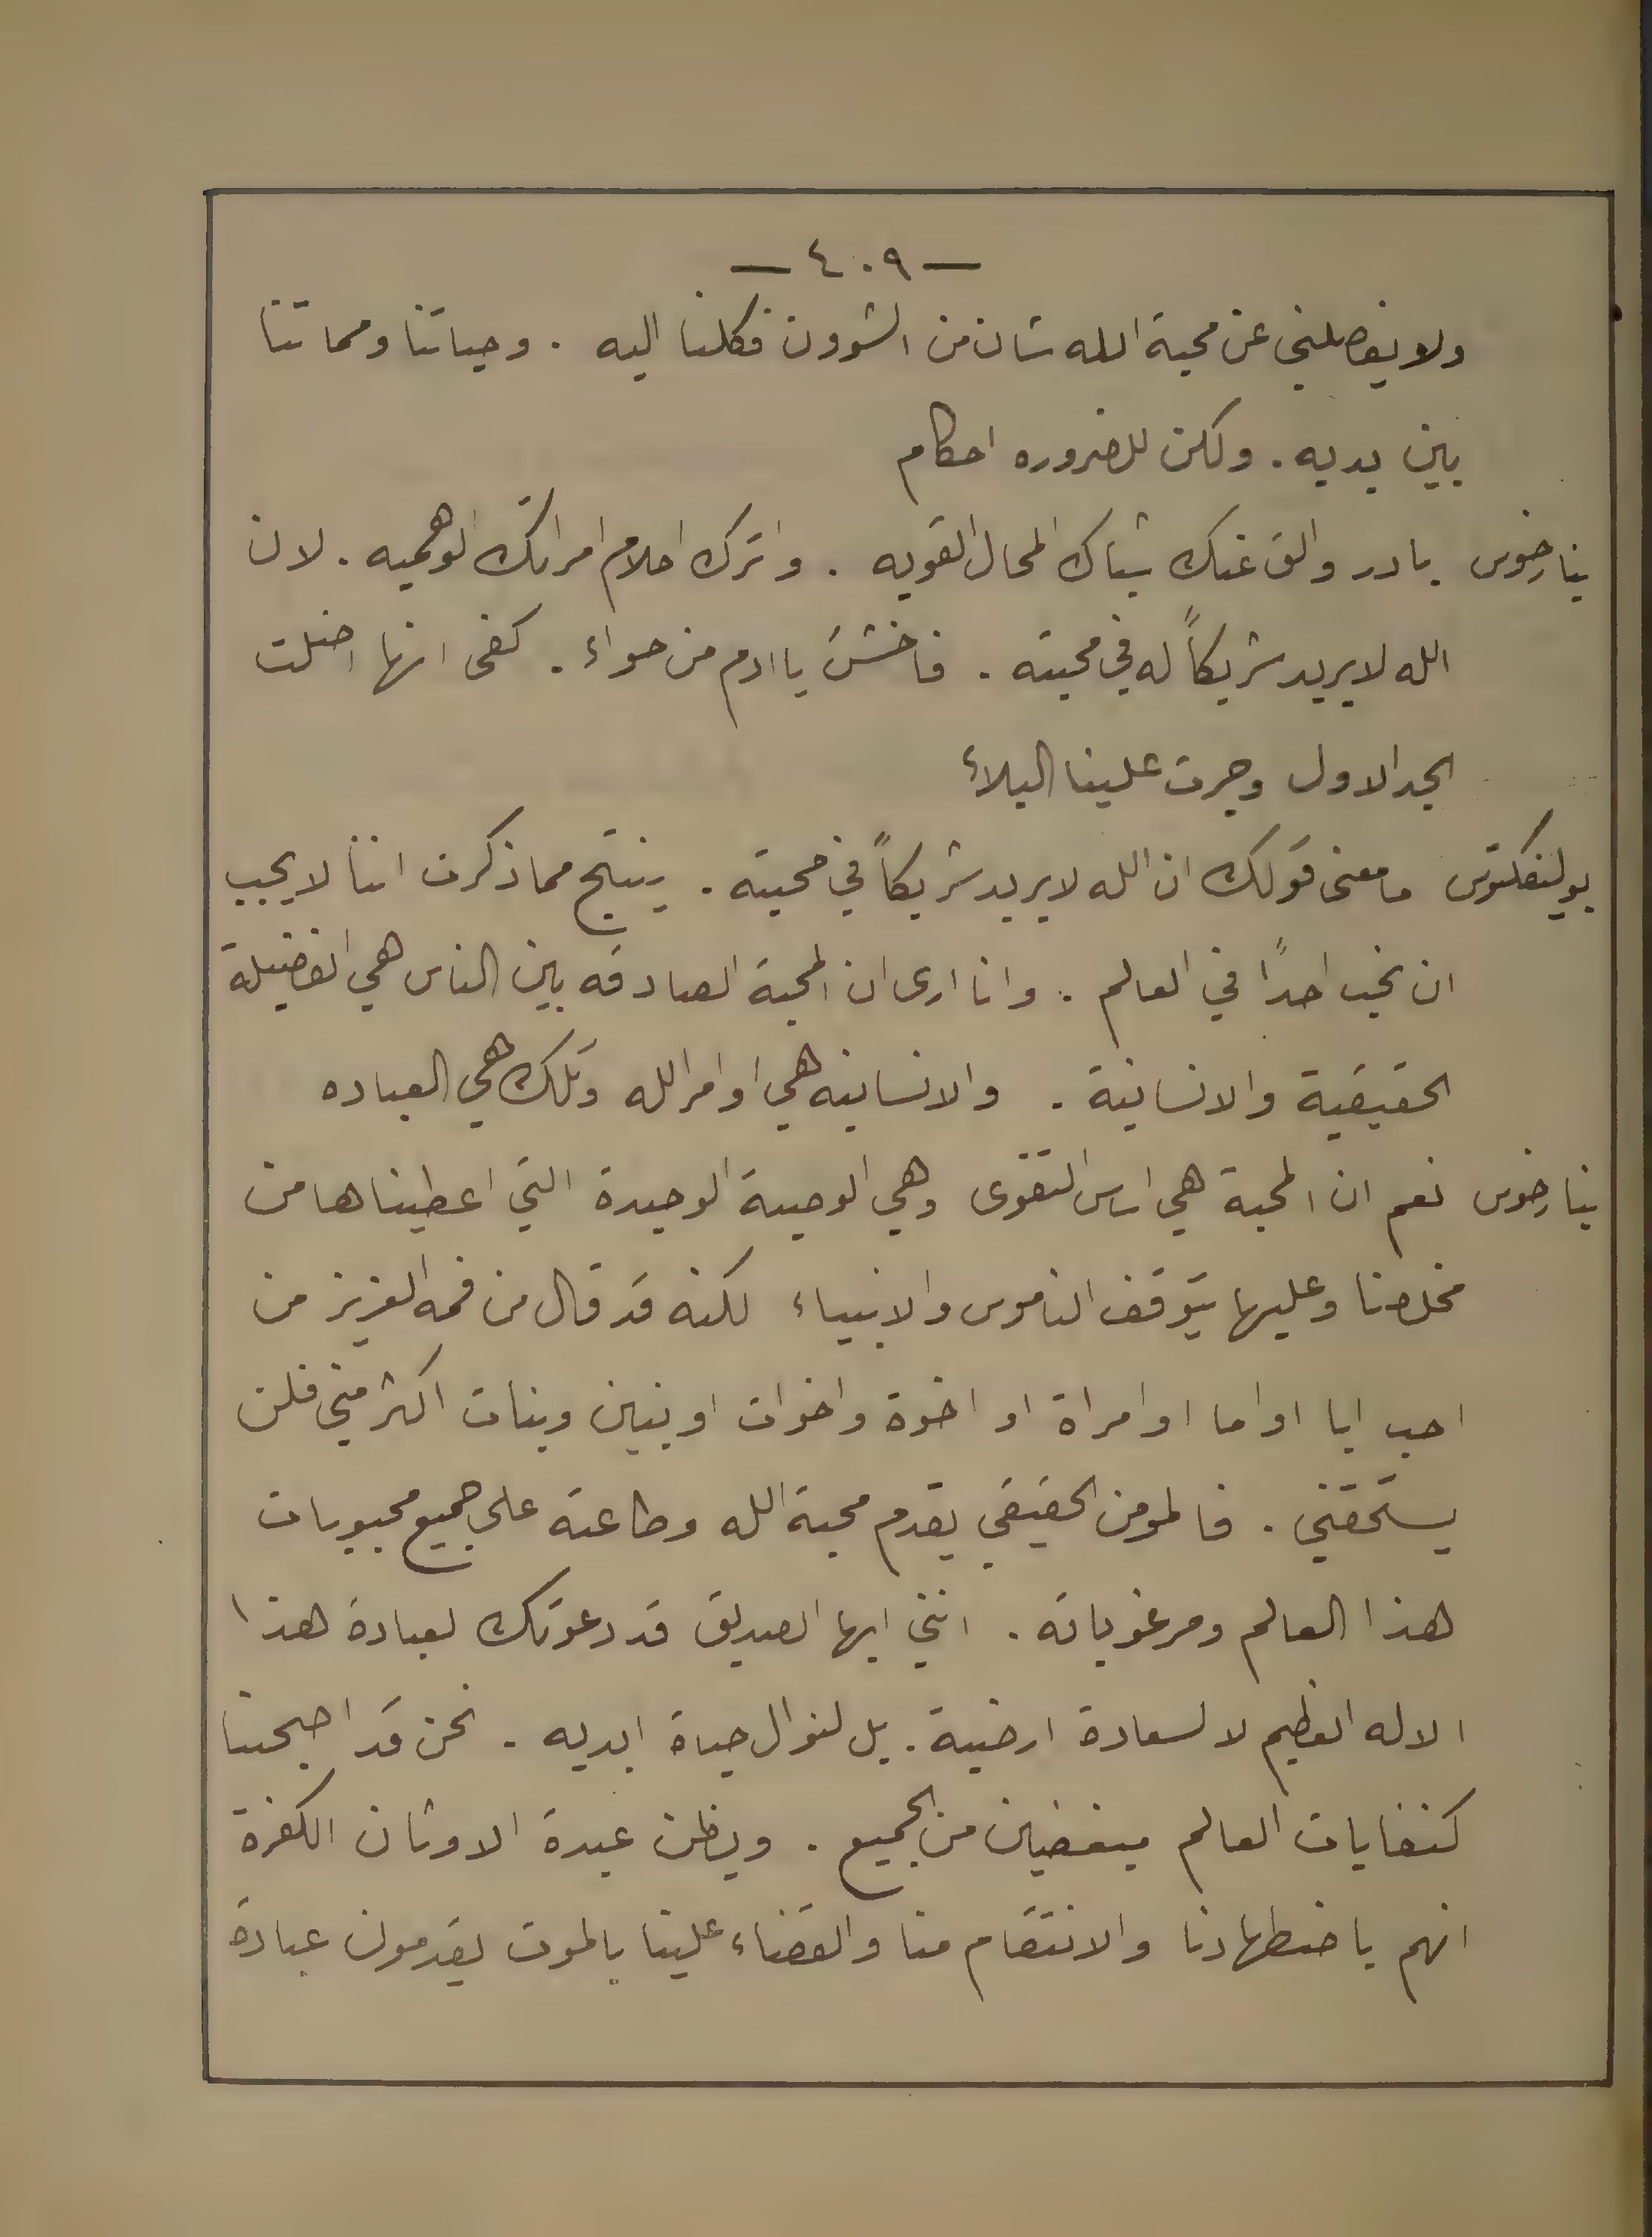 — ٤٠٩ —
ولا يفصلني عن محبة الله شان من الشوون فكلنا اليه . وحياتنا ومماتنا
بين يديه . ولكن للضروره احكام
نيارخوس بادر والق عنك شباك المحال القويه . واترك احلام امراتك الوهميه . لان
الله لا يريد شريكاً له في محبته . فاخشَ يا ادم من حواء . كفى انها اضلت
الجد الاول وجرت علينا البلاء
بوليفكتوس ما معنى قولك ان الله لا يريد شريكاً في محبته . ينتج مما ذكرت اننا لا يجب
ان نحب احدًا في العالم . وانا ارى ان المحبة الصادقه بين الناس هي الفضيلة
الحقيقية والانسانية . والانسانيه هي اوامر الله وتلك هي العباده
نيارخوس نعم ان المحبة هي اساس التقوى وهي الوصية الوحيدة التي اعطيناها من
مخلصنا وعليها يتوقف الناموس والانبياء لكنه قد قال من فمه العزيز من
احب ابا او اما او امراة او اخوة واخوات او بنين وبنات اكثر مني فلن
يستحقني . فالمومن الحقيقي يقدم محبة الله وطاعته على جميع محبوبات
هذا العالم ومرغوباته . انني ايها الصديق قد دعوتك لعبادة هذا
الاله العظيم لا لسعادة ارضية . بل لنوال حياة ابديه . نحن قد اصبحنا
كنفايات العالم مبغضين من الجميع . ويظن عبدة الاوثان الكفرة
انهم باضطهادنا والانتقام منا والقضاء علينا بالموت يقدمون عبادة